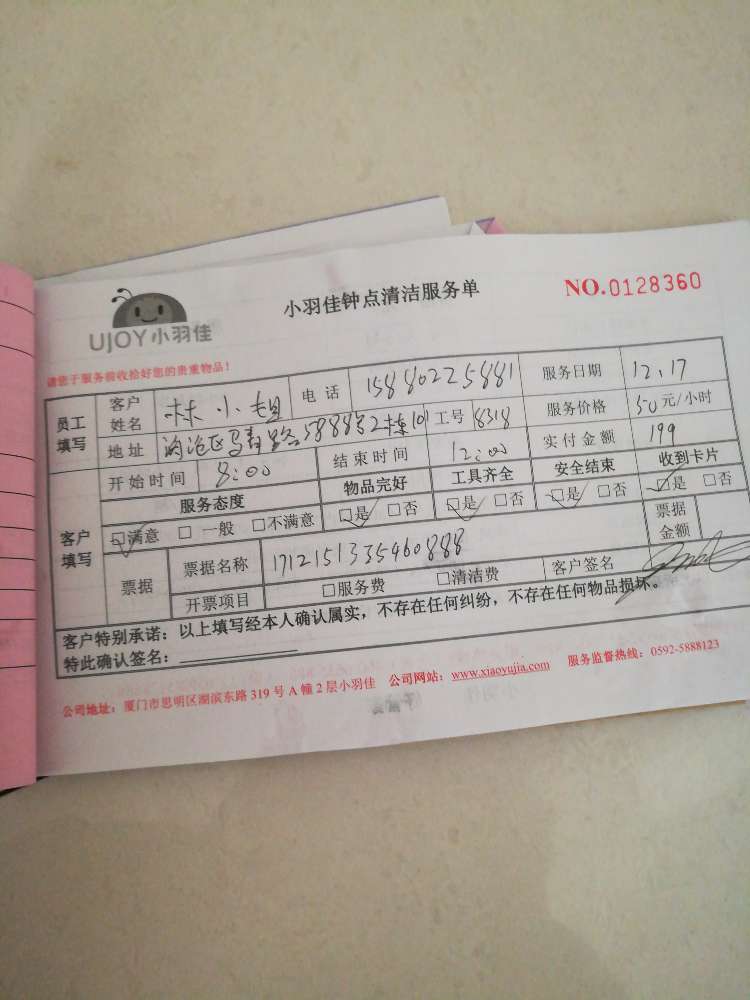 UJOY小羽佳
小羽佳钟点清洁服务单
NO.0128360
请您于服务前收拾好您的贵重物品！
员工填写 客户姓名 林小姐 电话 15880225881 服务日期 12.17
地址 海沧区马青路5888号2栋101 工号 8318 服务价格 50元/小时
开始时间 8:00 结束时间 12:00 实付金额 199
客户填写 服务态度 物品完好 工具齐全 安全结束 收到卡片
☑满意 □一般 □不满意 ☑是 □否 ☑是 □否 ☑是 □否 ☑是 □否
票据 票据名称 1712151335460888 票据金额
开票项目 □服务费 □清洁费 客户签名
客户特别承诺：以上填写经本人确认属实，不存在任何纠纷，不存在任何物品损坏。
特此确认签名：
公司地址：厦门市思明区湖滨东路319号A幢2层小羽佳 公司网站：www.xiaoyujia.com 服务监督热线：0592-5888123